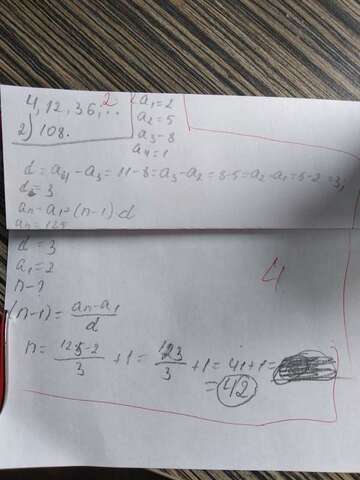 4, 12, 36, ... 2
2) 108.
a₁ = 2
a₂ = 5
a₃ - 8
a₄ = 1
d = a₄ - a₃ = 11 - 8 = a₃ - a₂ = 8 - 5 = a₂ - a₁ = 5 - 2 = 3;
d = 3
aₙ = a₁ + (n-1) · d
aₙ = 125
d = 3
a₁ = 2
n - ?
4
(n-1) = aₙ - a₁ / d
n = 125 - 2 / 3 + 1 = 123 / 3 + 1 = 41 + 1 =
= 42